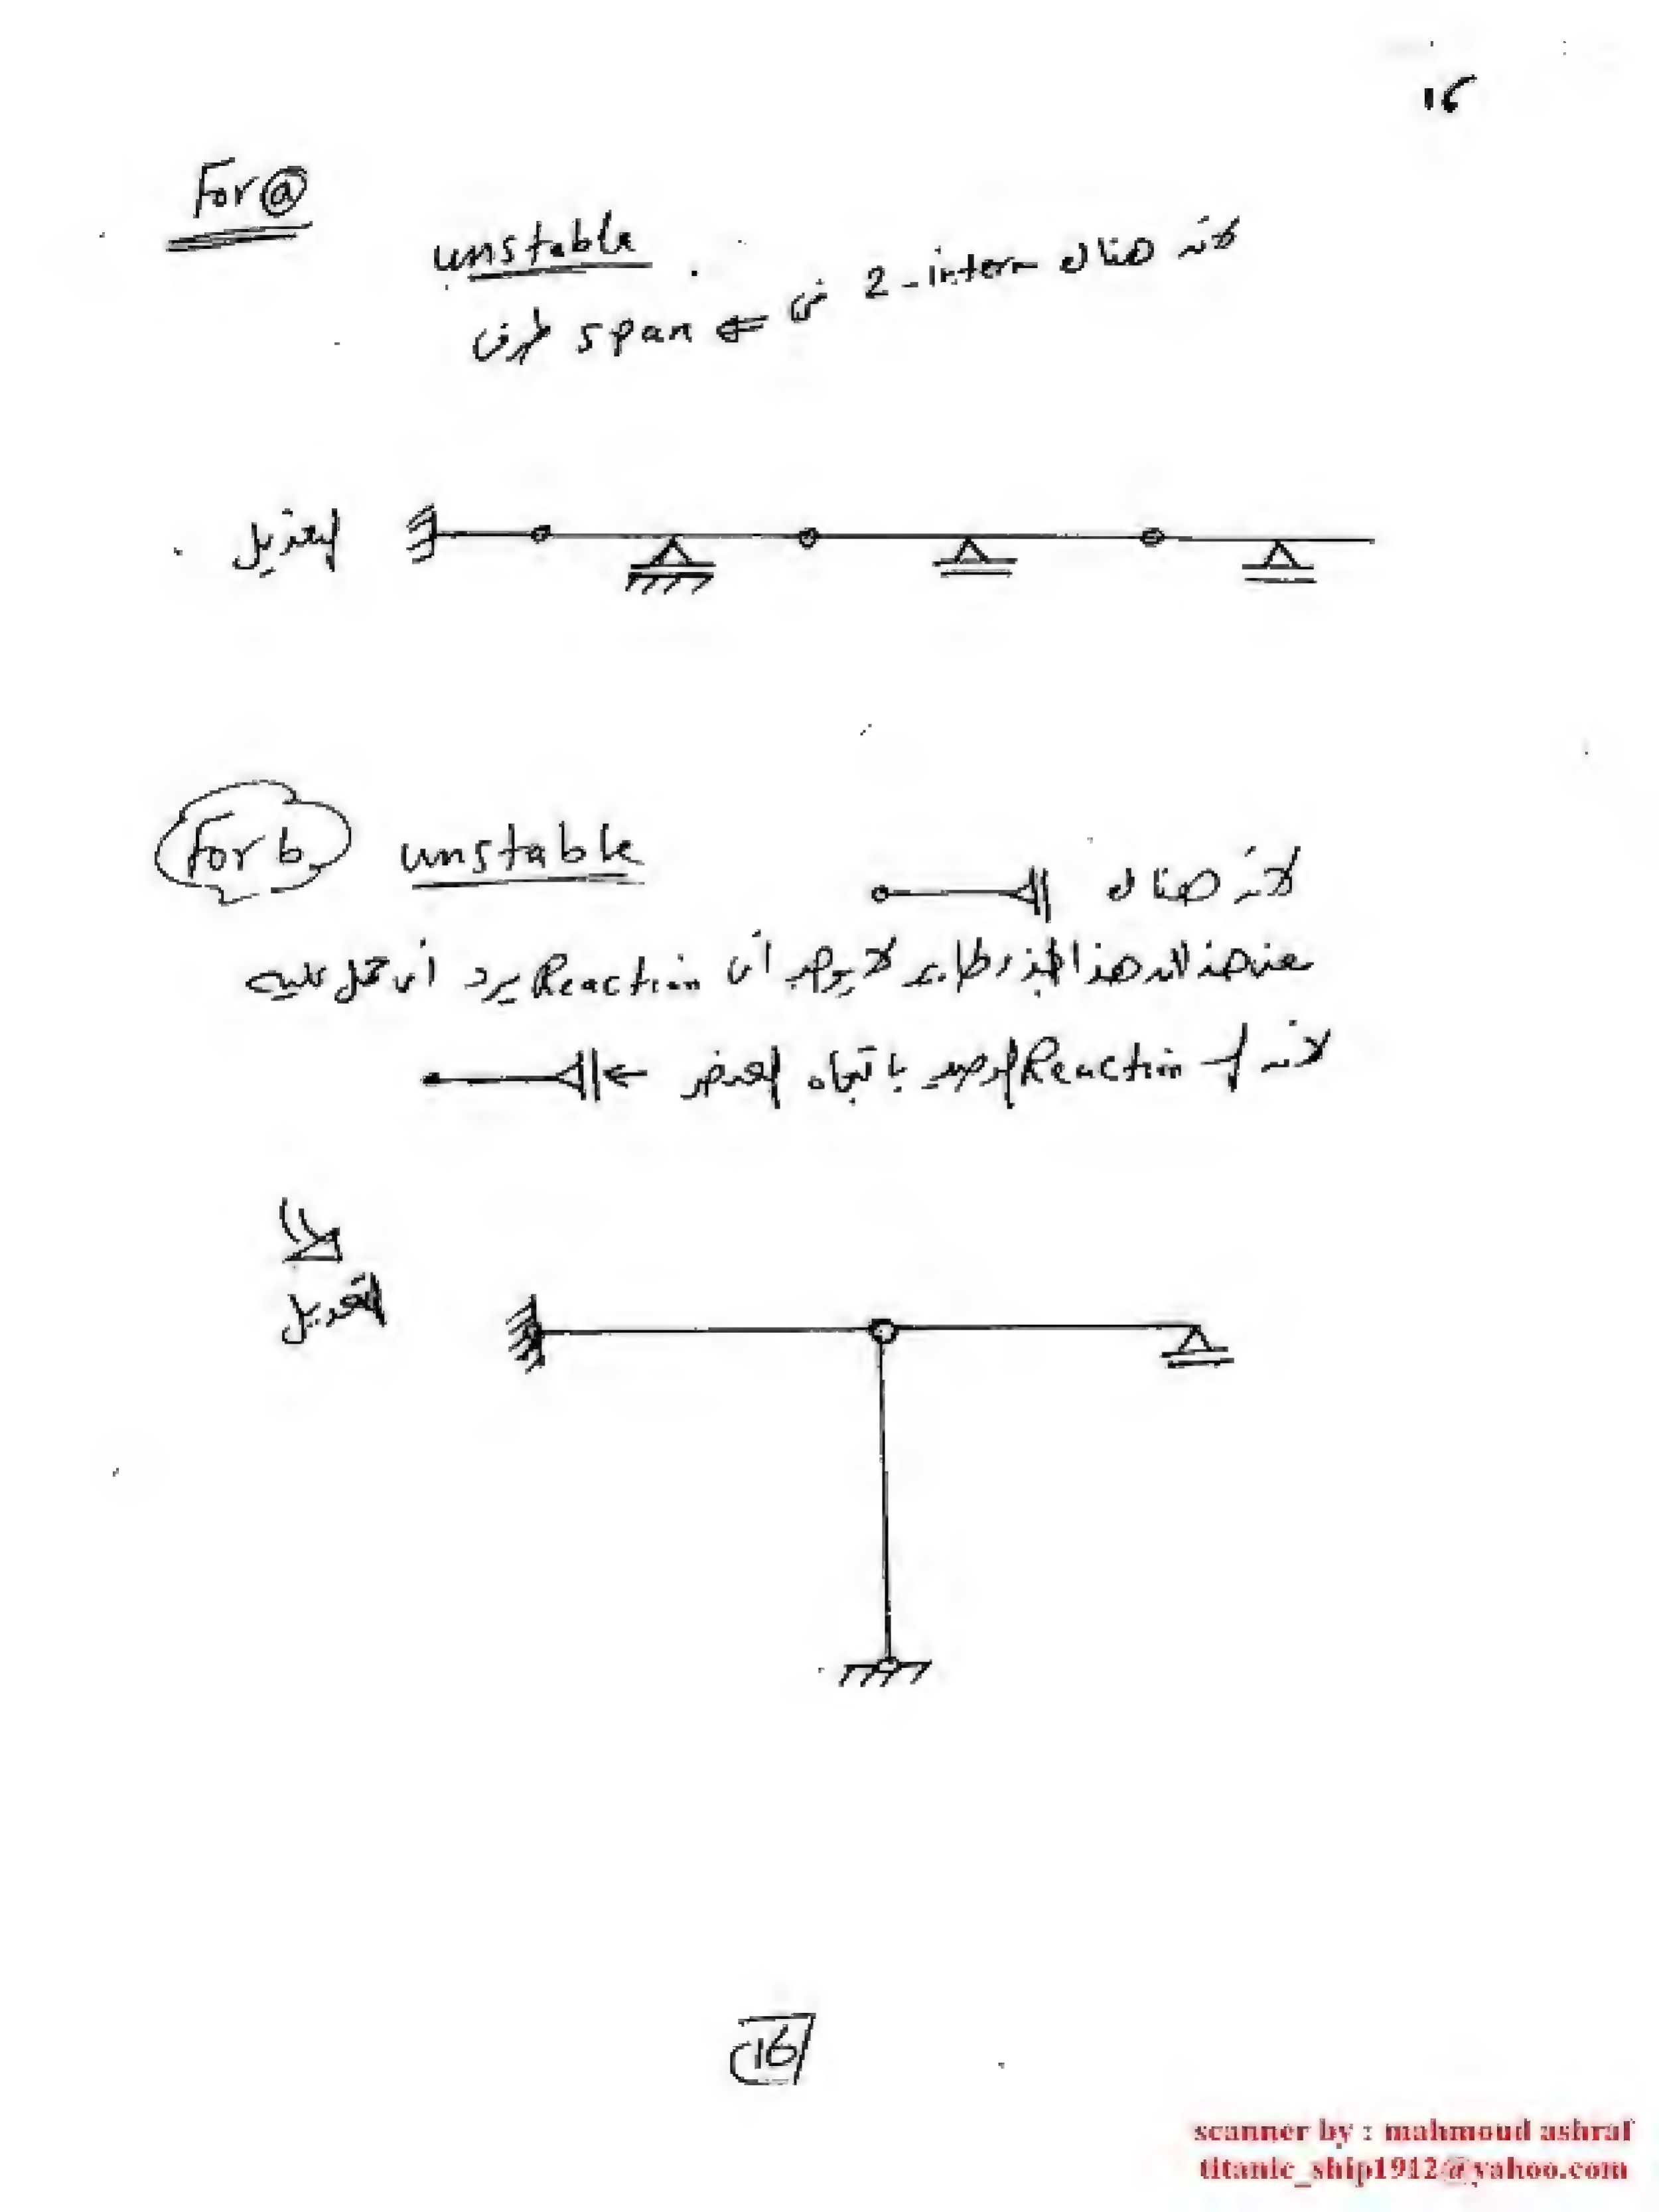 16
For (a)
unstable . لانه هناك 2-intern في
⇐ span طرفى
التعديل
For b unstable لانه هناك
عند هذا الجزء لا يوجد أى Reaction يرد أى حمل عليه
لانه الـ Reaction الوحيد باتجاه العنصر ←
التعديل
16
scanner by : mahmoud ashraf
titanic_ship1912@yahoo.com